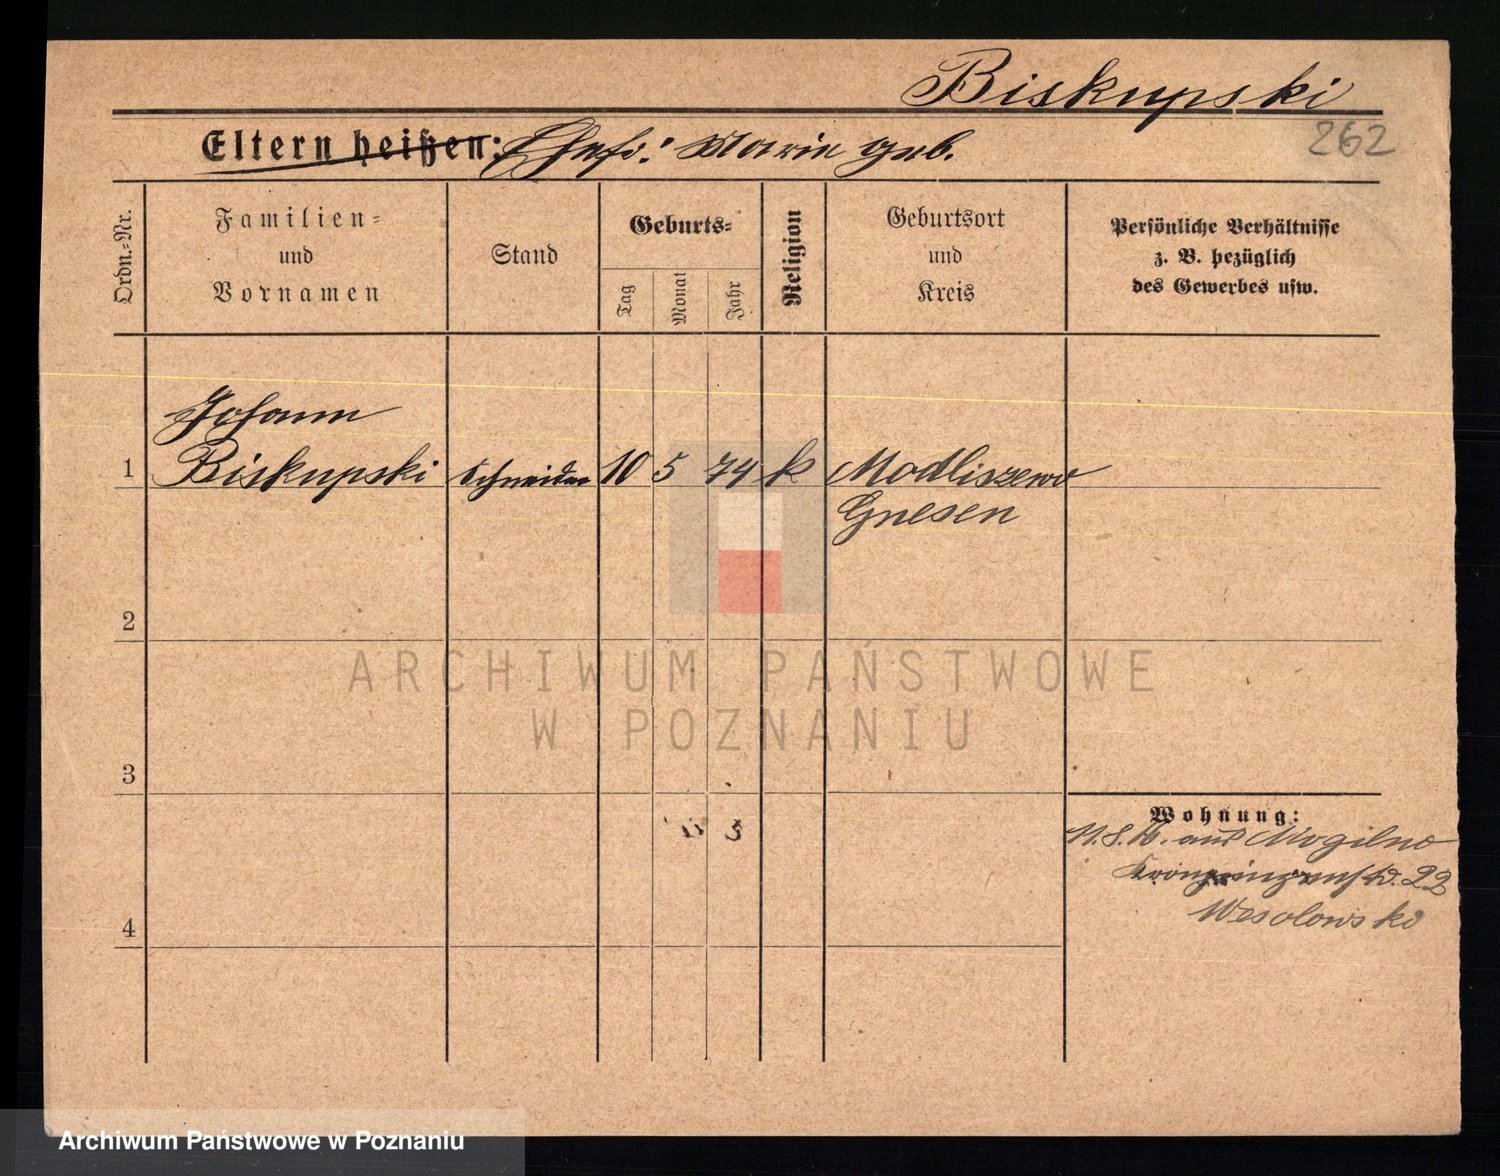 Biskupski
262
Eltern heißen: Ehefr: Marie geb.
Ordn.-Nr.
Familien-
und
Vornamen
Stand
Geburts-
Tag
Monat
Jahr
Religion
Geburtsort
und
Kreis
Persönliche Verhältnisse
z. B. bezüglich
des Gewerbes usw.
Johann
1 Biskupski Schneider 10 5 74 k Modliszewo
Gnesen
2
ARCHIWUM PAŃSTWOWE
W POZNANIU
3
Wohnung:
aus Mogilno
Kronprinzenstr. 22
Wesolowski
4
Archiwum Państwowe w Poznaniu